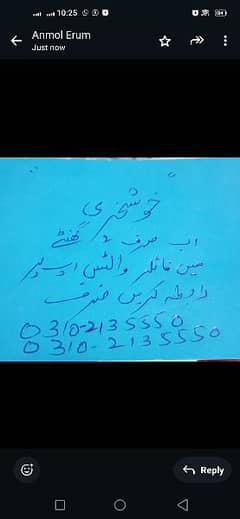 10:25
Anmol Erum
Just now
خوشخبری
اب صرف 2 گھنٹے
میں فائلر واٹس ایپ پر
رابطہ کریں صرف
0310-2135550
0310-2135550
Reply